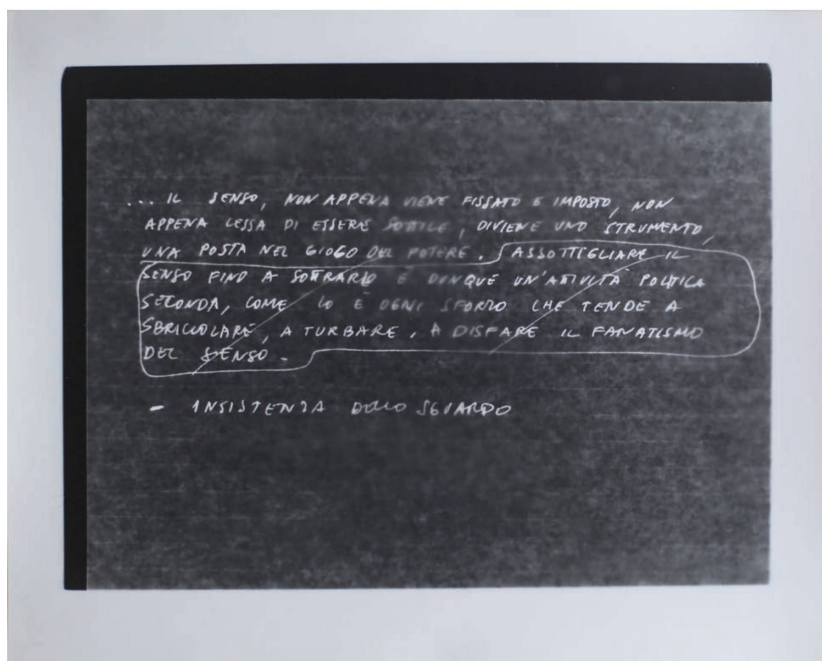 ... IL SENSO, NON APPENA VIENE FISSATO E IMPOSTO, NON
APPENA CESSA DI ESSERE SOTTILE, DIVIENE UNO STRUMENTO,
UNA POSTA NEL GIOGO DEL POTERE. ASSOTTIGLIARE IL
SENSO FINO A SOTTRARLO È DUNQUE UN'ATTIVITÀ POLITICA
SECONDA, COME LO È OGNI SFORZO CHE TENDE A
SBRICIOLARE, A TURBARE, A DISFARE IL FANATISMO
DEL SENSO.
- INSISTENZA DELLO SGUARDO